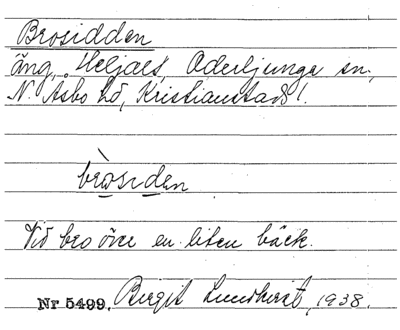 Brosidden
äng, Heljaes, Oderljunga sn,
N. Åsbo hd, Kristianstads l.
brosıden
Vid bro över en liten bäck.
Nr 5499. Birgit Lundkvist, 1938.